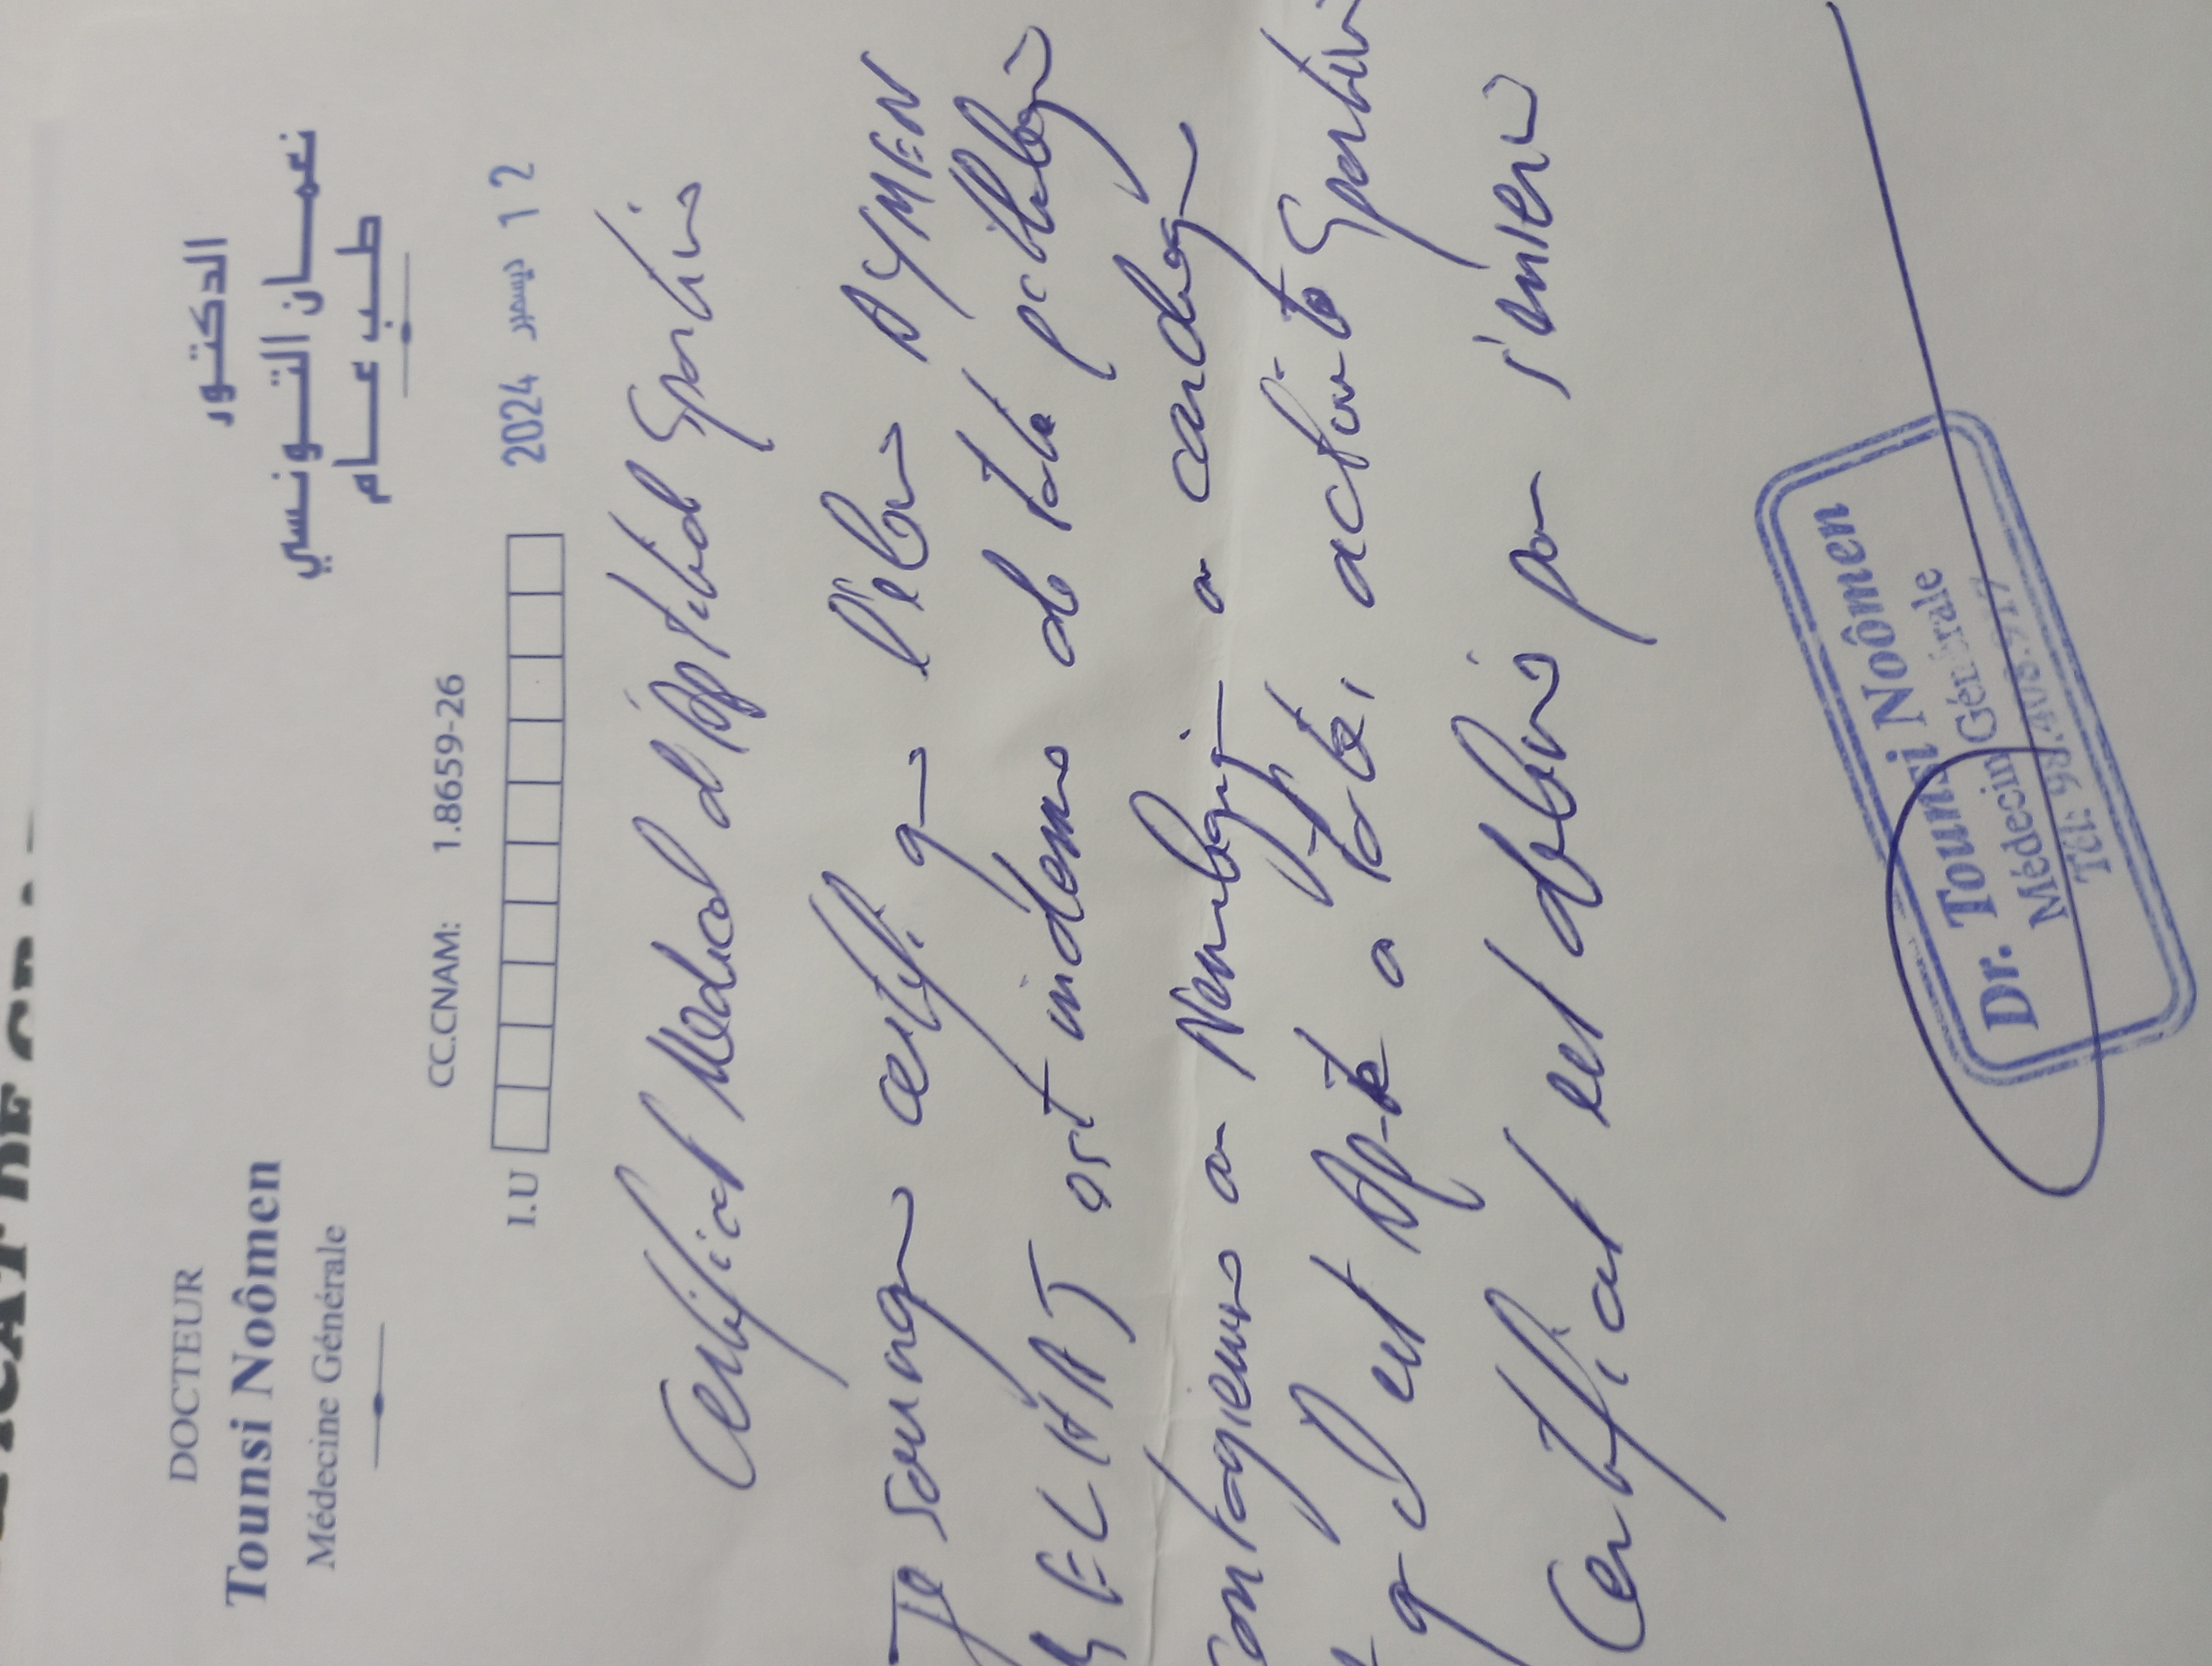 DOCTEUR
Tounsi Noômen
Médecine Générale
الدكتور
نعمان التونسي
طبيب عام
CC.CNAM: 1.8659-26
I.U
2024 ديسمبر 12
Certificat Medical d'Aptitude Sportive
Je certifie que l'élève AYMEN
est indemne de toute pathologie
contagieuse
est Apte a toute activité Sportive
Certificat est délivré pour s'en servir
Dr. Tounsi Noômen
Médecine Générale
Tél: 98.408.